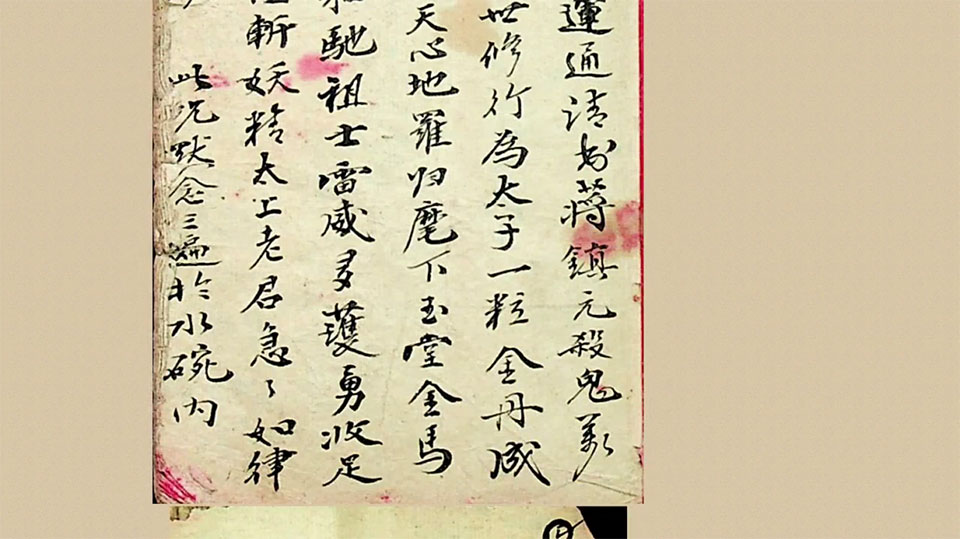 運通請出蔣鎮元殺鬼萬
世修行為太子一粒金丹成
天心地羅归麾下玉堂金馬
馳祖士雷威多護勇收足
斬妖精太上老君急々如律
此咒默念三遍於水碗内